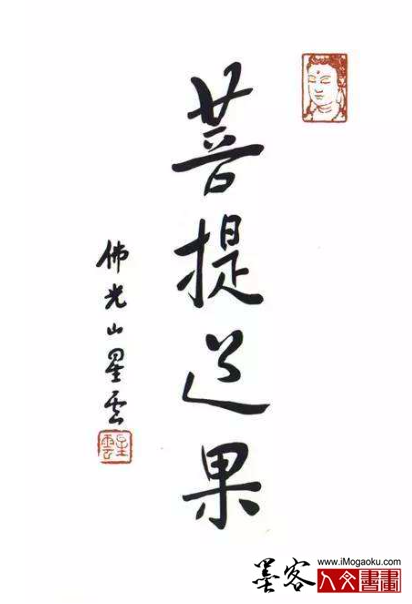 菩提道果
佛光山星雲
星雲
www.iMogaoku.com
墨客
人文書畫